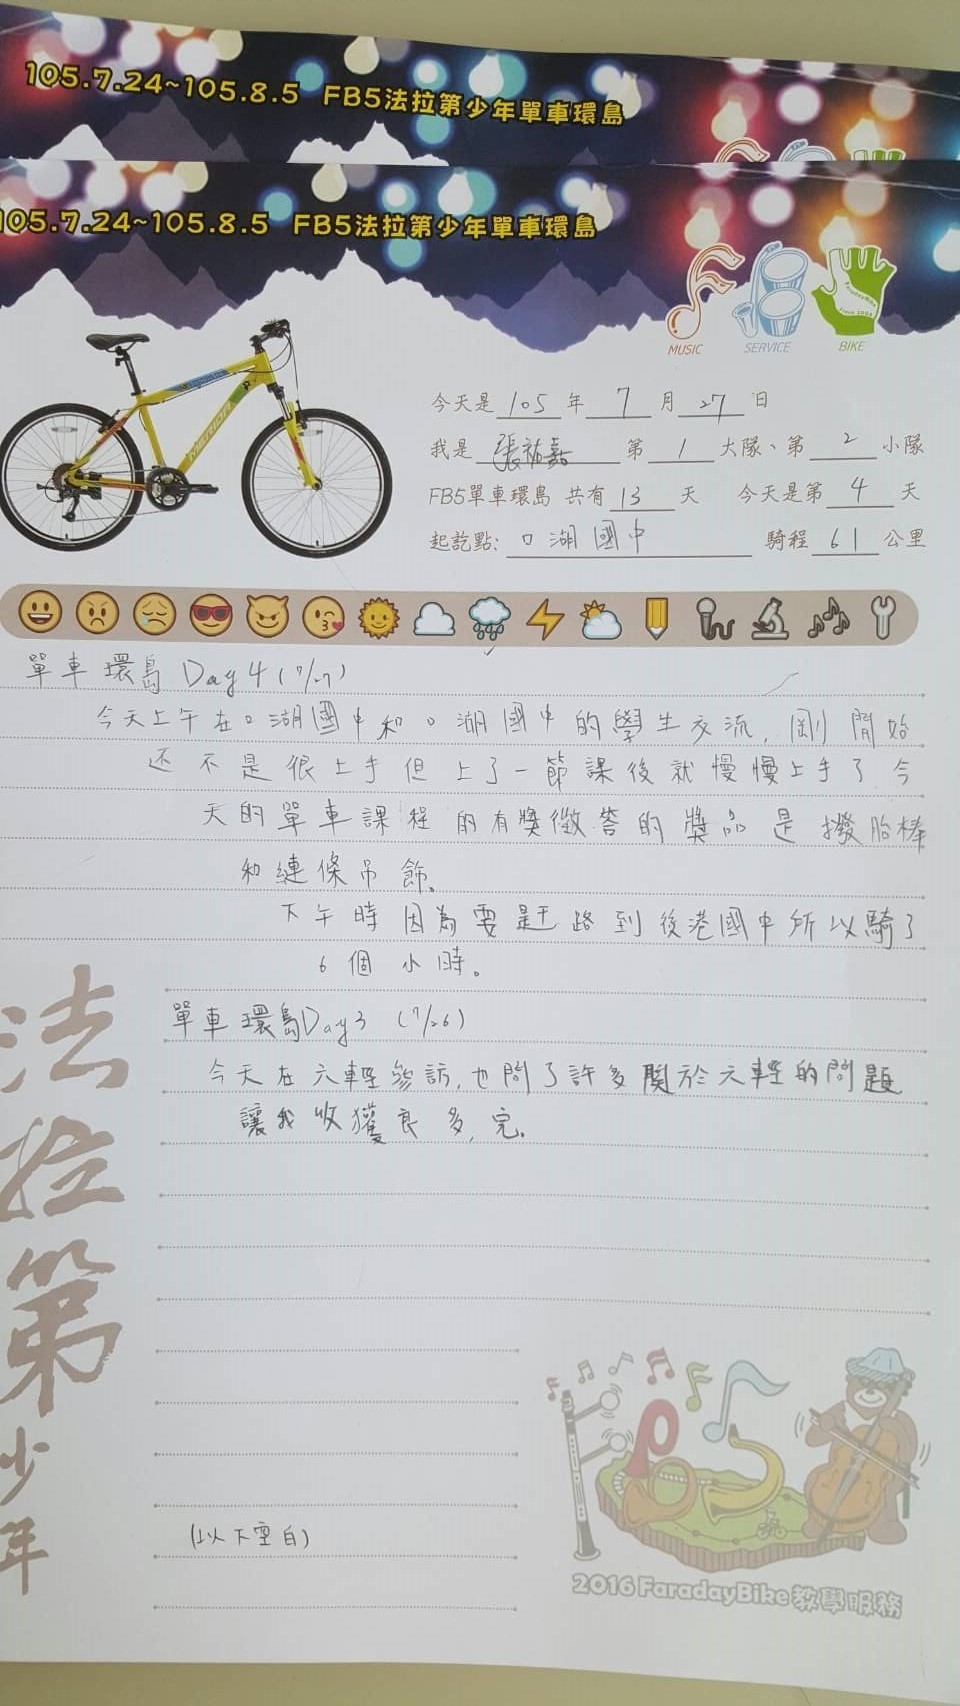 105.7.24~105.8.5 FB5法拉第少年單車環島
105.7.24~105.8.5 FB5法拉第少年單車環島
MUSIC SERVICE BIKE
FaradayBike
Since 2008
MERIDA
今天是 105 年 7 月 27 日
我是 張祐嘉 第 1 大隊、第 2 小隊
FB5單車環島 共有 13 天 今天是第 4 天
起訖點: 口湖國中 騎程 61 公里
單車環島 Day 4 (7/27)
今天上午在口湖國中和口湖國中的學生交流,剛開始
还不是很上手但上了一節課後就慢慢上手了今
天的單車課程的有獎徵答的獎品是撥胎棒
和鏈條吊飾。
下午時因為要趕路到後港國中所以騎了
6個小時。
單車環島Day3 (7/26)
今天在六輕參訪,也問了許多關於六輕的問題
讓我收獲良多,完.
法拉第少年
(以下空白)
2016 FaradayBike 教學服務